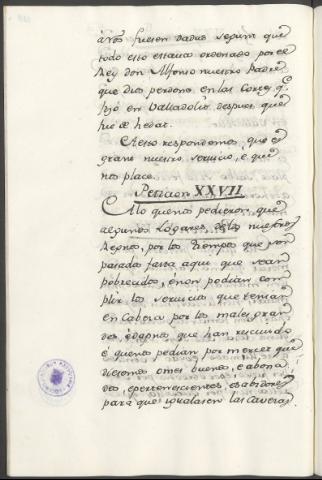 à vos fuesen dadas segunt que
todo esto estaua ordenado por el
Rey don Alfonso nuestro Padre
que Dios perdone en las Cortes qe
fizo en Valladolit despues que
fue de hedat.
A esto respondemos, que es
grant nuestro seruicio, e que
nos place.
Peticion XXVII
A lo que nos pedieron, que
algunos Logares de los nuestros
Regnos, por los tiempos que son
pasados fasta aqui que sean
pobrecidos, e non podian com
plir los seruicios que tenian
en Cabeza por los males gran
des, è dapnos que han rescuido
è que nos pedian por merced que
diesemos omes buenos, e abona
dos, e pertenescientes, e sabidores
para que igualasen las Cavezas